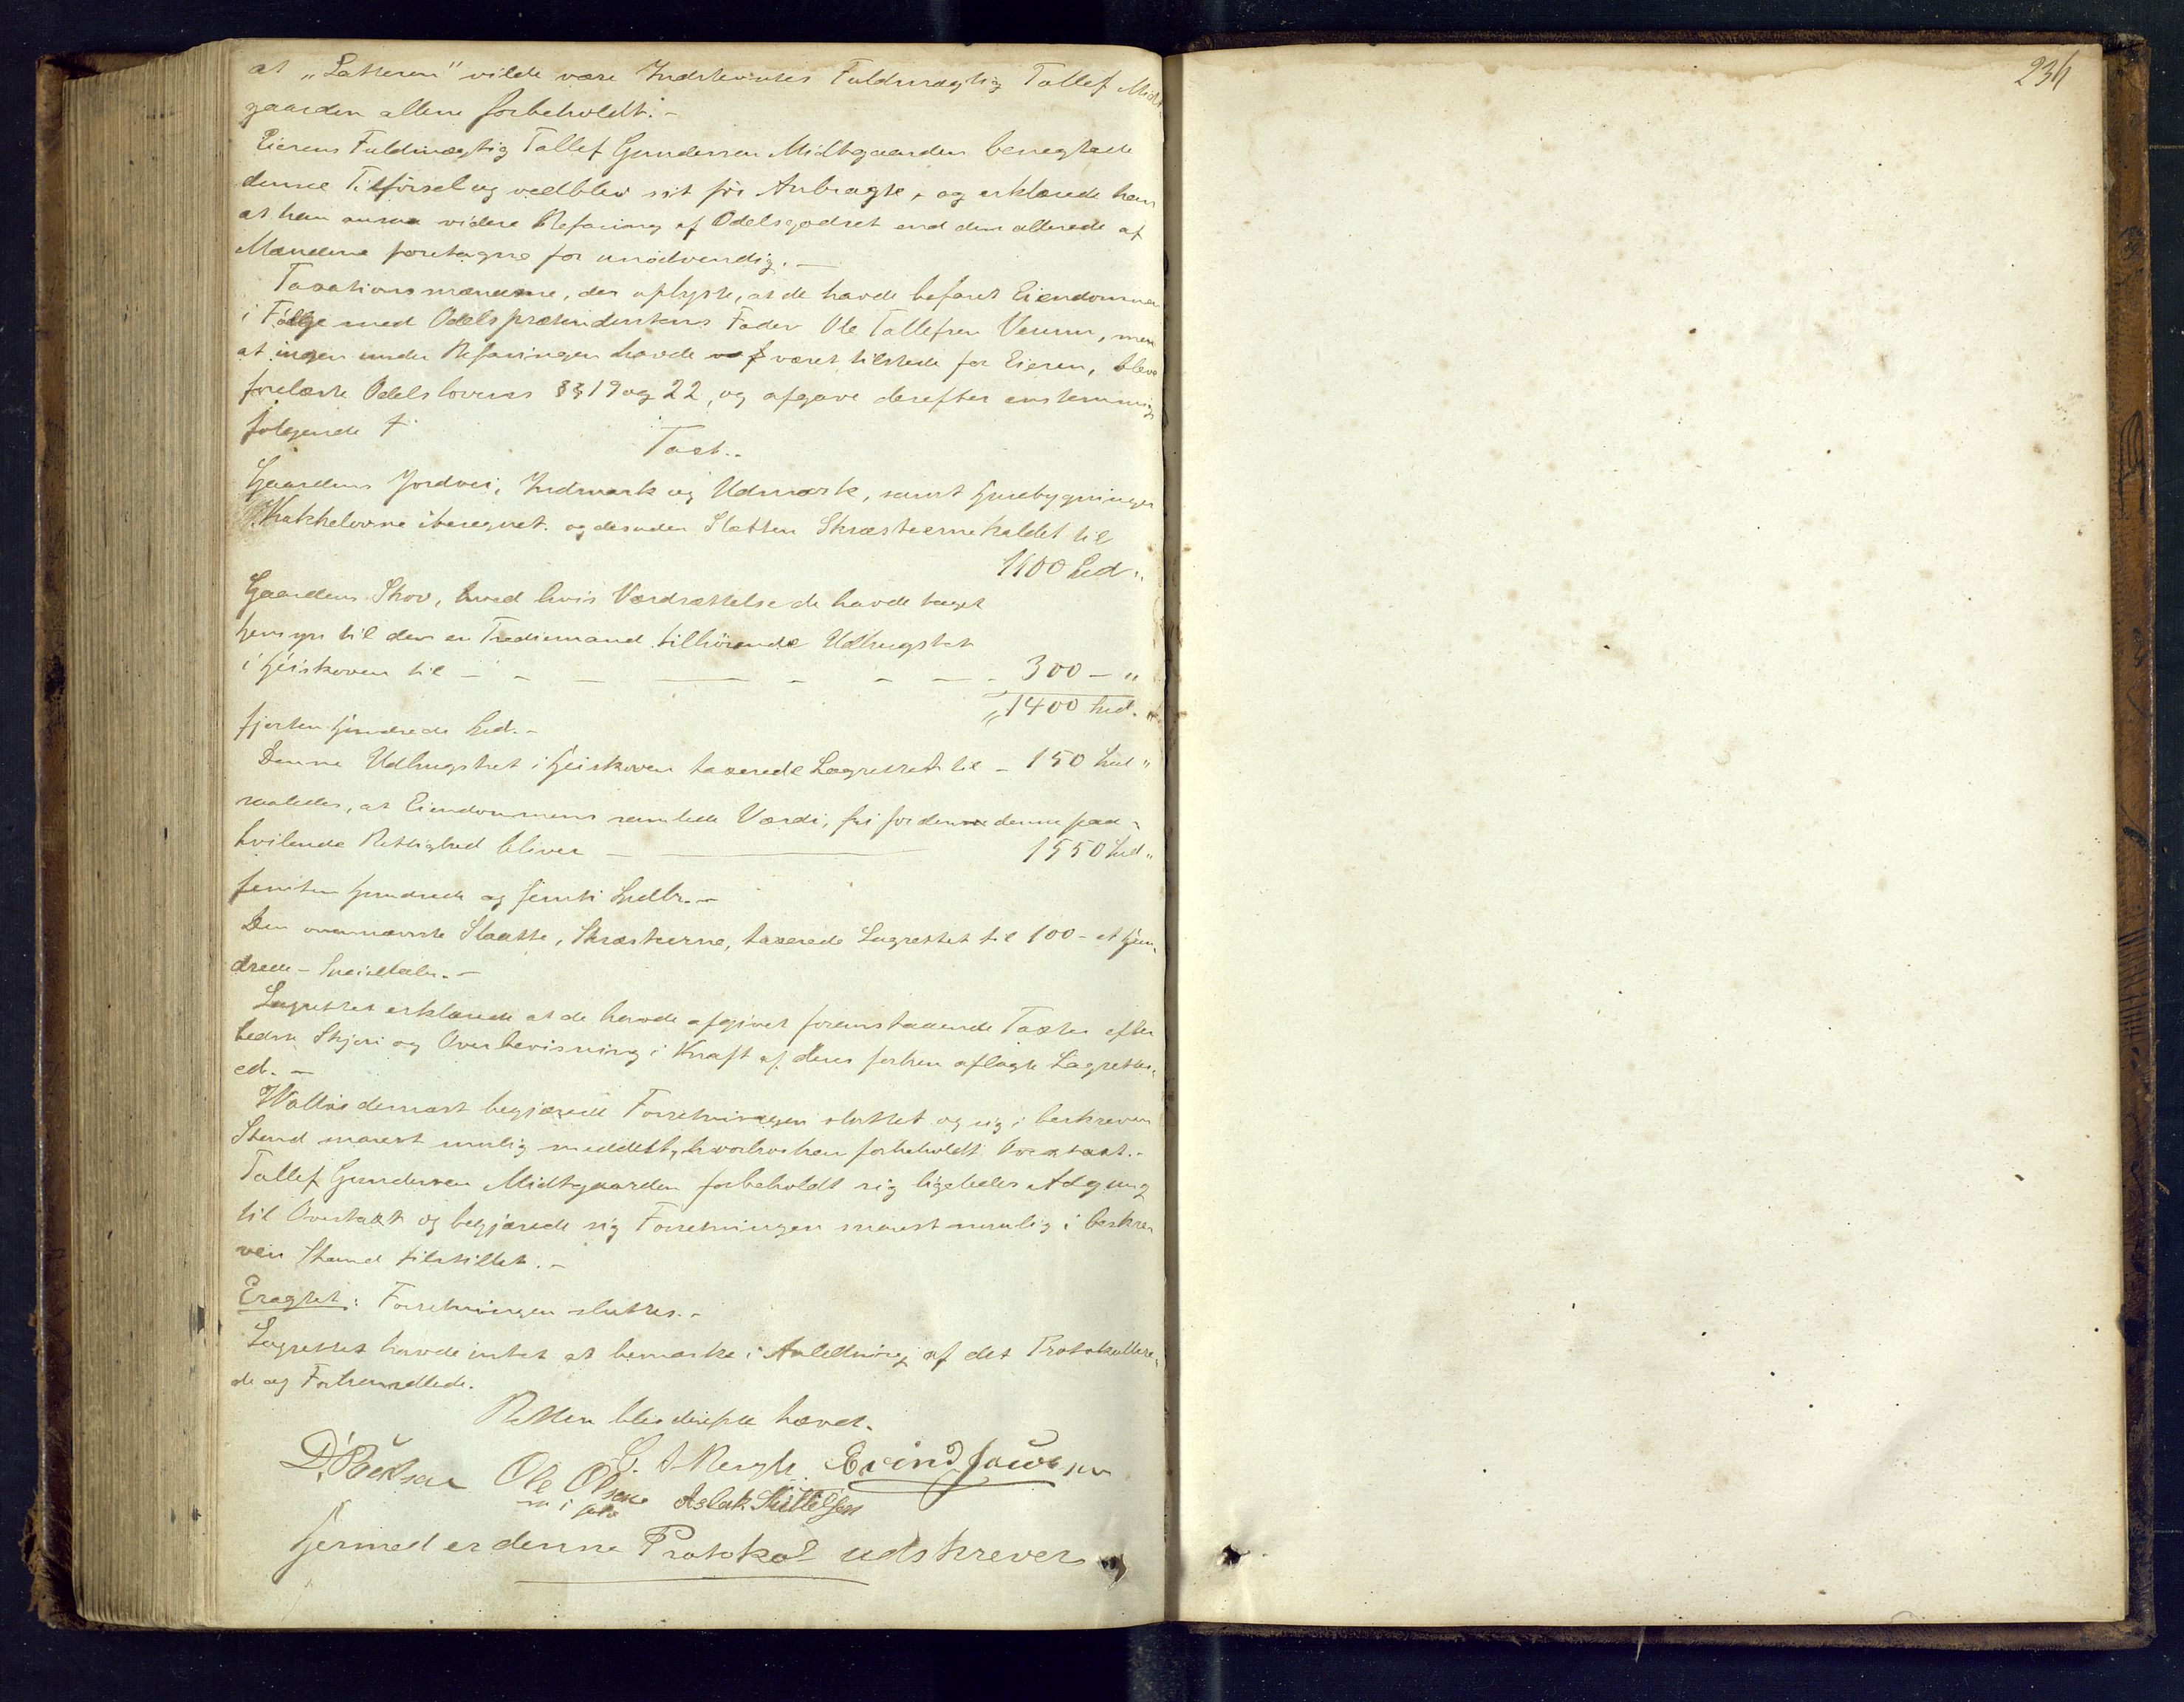 234
at „Latteren" vilde være Indstevntes Fuldmægtig Tallef Midt
gaarden allene forbeholdt.-
Eierens Fuldmægtig Tallef Gundersen Midtgaarden benegtede
denne Tilførsel og vedblev sit før Anbragte, og erklærede han
at han ansaa videre Befaring af Odelsgodset end den allerede af
Mændene foretagne for unødvendig. —
Taxationsmændene, der oplyste, at de havde befaret Eiendommen
i Følge med Odelsprætendentens Fader Ole Tallefsen Venum, men
at ingen under Befaringen havde været tilstede for Eieren, bleve
forelæste Odelslovens §§ 19 og 22, og afgave derefter enstemmig
følgende
Taxt..
Gaardens Jordvei, Indmark og Udmark, samt Husebygninger
Kakkelovne iberegnet og desuden Slatten Skræsteerne kaldet til
1100 Spd "
Gaardens Skov, hved hvis Værdsættelse de havde taget
Hensyn til den en Trediemand tilhørende Udhugstret
i Heiskoven til — — — — — — 300 — "
1400 Spd. "
fjorten Hundrede Spd.-
Denne Udhugstret i Heiskoven taxerede Lagrettet til - 150 Spd "
saaledes, at Eiendommens samlede Værdi, fri for denne paa-
hvilende Rettighed bliver — — 1550 Spd "
femten Hundrede og femti Spdlr.-
Den ovennævnte Slaatte, Skræsteerne, taxerede Lagrettet til 100 - et Hun-
drede - Speciedaler.-
Lagrettet erklærede at de havde afgivet foranstaaende Taxter efter
bedste Skjøn og Overbevisning i Kraft af deres forhen aflagte Lagrettes-
ed. —
Wattne dernæst begjærede Forretningen sluttet og sig i beskreven
Stand snarest mulig meddelt, hvorhos han forbeholdt Overtaxt.-
Tallef Gundersen Midtgaarden forbeholdt sig ligeledes Adgang
til Overtaxt og begjærede sig Forretningen snarest mulig i beskre
ven Stand tilstillet.-
Eragtet: Forretningen sluttes.-
Lagrettet havde intet at bemærke i Anledning af det Protokollere-
de og Forhandlede.
Retten blev derefter hævet.
Ole Olsen Evind Jacobsen
m i P Aslak Kittelsen
Hermed er denne Protokol udskreven